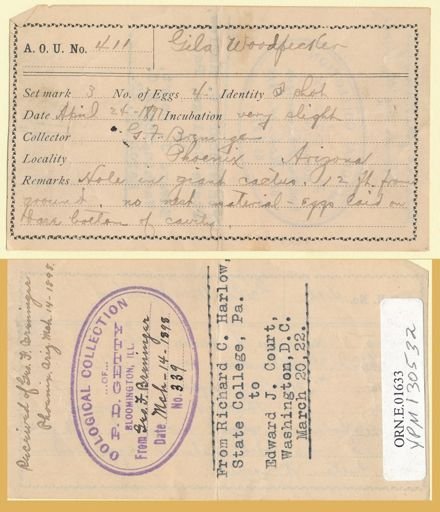 A. O. U. No. 411 Gila Woodpecker
Set mark 3 No. of Eggs 4 Identity shot
Date April 24-1897 Incubation very slight
Collector G. F. Breninger
Locality Phoenix Arizona
Remarks Hole in giant cactus. 12 ft. from
ground. no nest material - eggs laid on
bare bottom of cavity
Received of Geo. F. Breninger
Phoenix Ariz Mch. 14-1898.
OOLOGICAL COLLECTION
...OF...
P. D. GETTY
BLOOMINGTON, ILL.
From Geo. F. Breninger
Date Mch-14-1898
No. 339
From Richard C. Harlow,
State College, Pa.
to
Edward J. Court,
Washington, D.C.
March 20, 22.
ORN.E.01633
YPM 130532